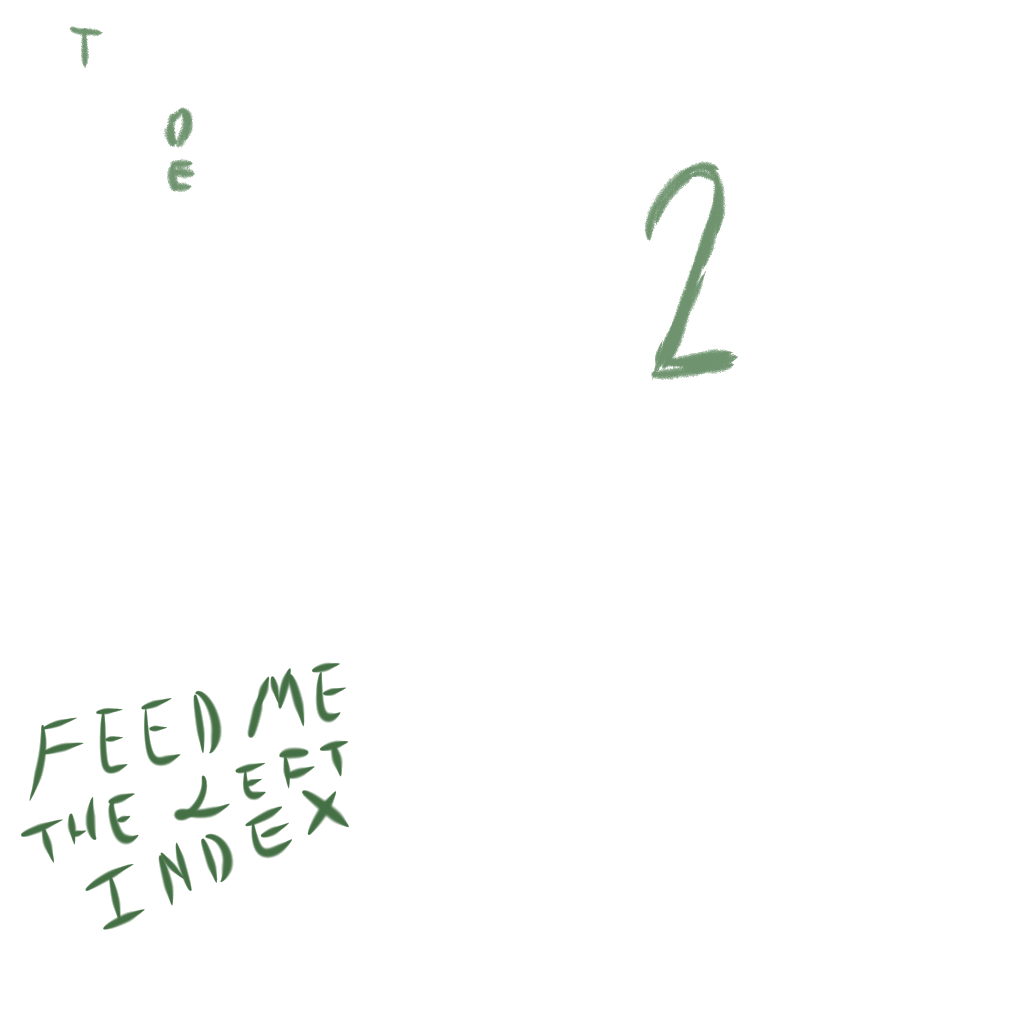 T
O
E
2
FEED ME
THE LEFT
INDEX